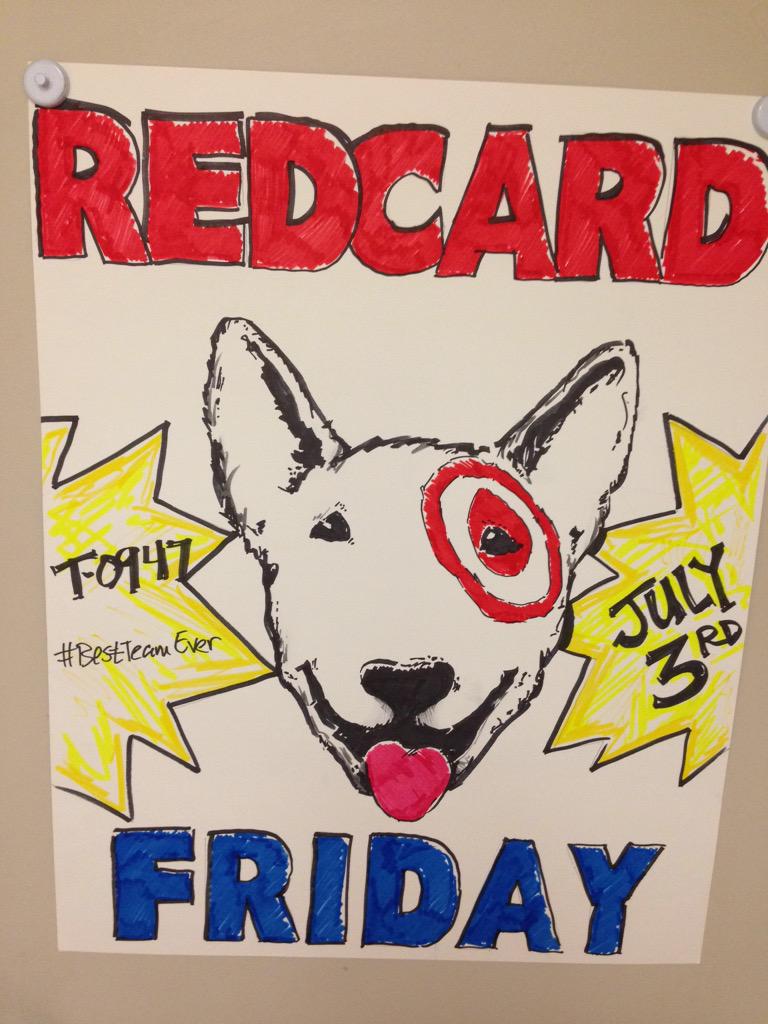 REDCARD
T-0947
#BestTeamEver
JULY
3RD
FRIDAY